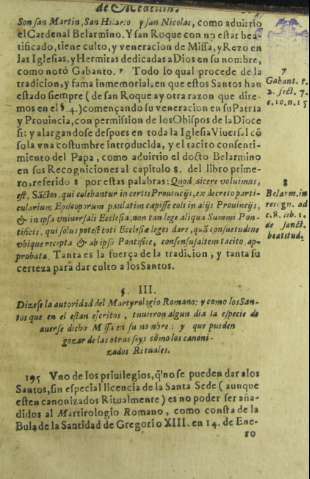 de Medellin.
Son san Martin, San Hilario y san Nicolas, como aduirtio
el Cardenal Belarmino. Y san Roque con no estar bea-
tificado, tiene culto, y veneracion de Missa, y Rezo en
las Iglesias, y Hermitas dedicadas a Dios en su nombre,
como notó Gabanto. 7 Todo lo qual procede de la
tradicion, y fama inmemorial, en que estos Santos han
estado siempre (de san Roque ay otra razon que dire-
mos en el §. 4.) començando su veneracion en su Patria
y Prouincia, con permission de los Obispos de la Dioce
si: y alargandose despues en toda la Iglesia Viuersal cõ
sola vna costumbre introducida, y el tacito consenti-
miento del Papa, como aduirtio el docto Belarmino
en sus Recogniciones al capitulo 8. del libro prime-
ro, referido 8 por estas palabras: Quod dicere voluimus,
est, Sãctos, qui colebantur in certis Prouincijs, ex decreto parti-
cularium Episcoporum paulatim cœpisse coli in alijs Prouincijs,
& in ipsa vniuersali Ecclesia, non tam lege aliqua Summi Pon-
tificis, qui solus potest toti Ecclesiæ leges dare, quã consuetudine
vbique recepta & ab ipso Pontifice, consensu saltem tacito, ap-
probata. Tanta es la fuerça de la tradicion, y tanta su
certeza para dar culto a los Santos.
7
Gabant. t.
2. sect. 7.
c. 10. n. 15
8
Belarm. in
recogn. ad
c. 8. lib. 1.
de sanct.
beatitud.
§. III.
Dizese la autoridad del Martyrologio Romano: y como los San-
tos que en el estan escritos, tuuieron algun dia la especie de
auerse dicho Missa en su nombre, y que pueden
gozar de las otras seys cõmo los canoni-
zados Rituales.
195 Vno de los priuilegios, q̃ no se pueden dar a los
Santos, sin especial licencia de la Santa Sede (aunque
esten canonizados Ritualmente) es no poder ser aña-
didos al Martirologio Romano, como consta de la
Bula de la Santidad de Gregorio XIII. en 14. de Ene-
ro